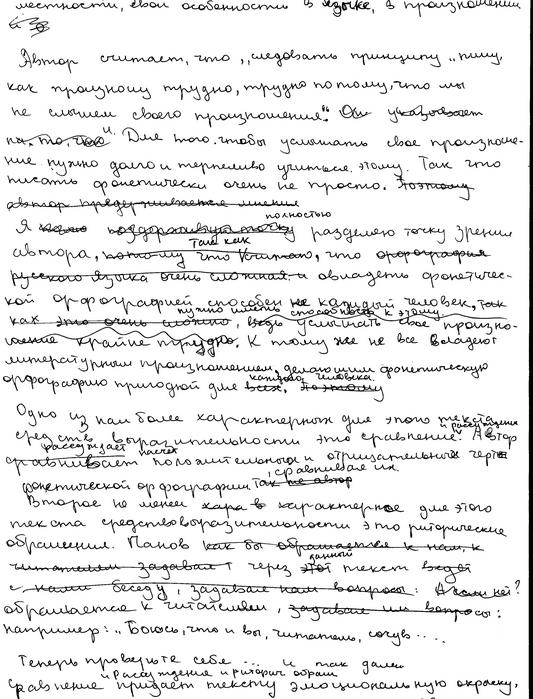 местности, свои особенности в языке, в произношении
Автор считает, что „следовать принципу „пишу,
как произношу трудно, трудно потому, что мы
не слышим своего произношения". Он указывает
на то, что и. Для того, чтобы услышать свое произноше-
ние нужно долго и терпеливо учиться этому. Так что
писать фонетически очень не просто. Поэтому
автор придерживается мнения
полностью
Я поддерживаю точку разделяю точку зрения
так как
автора, потому что считаю, что орфография
русского языка очень сложная и овладеть фонетичес-
кой орфографией способен не каждый человек, так
нужно иметь способность к этому.
как это очень сложно, ведь услышать свое произно-
шение крайне трудно. К тому же не все владеют
литературным произношением, делающим фонетическую
каждого человека.
орфографию пригодной для всех. Поэтому
Одно из наиболее характерных для этого текста
и рассуждения
средств выразительности это сравнение. Автор
рассуждает насчет
сравнивает положительных и отрицательных черт
, сравнивая их.
фонетической орфографии так же автор
Второе не менее хара в характерное для этого
текста средство выразительности это риторические
обращения. Панов как бы обращается к нам, к
данный
читателям задавая т через этот текст ведет
с нами беседу, задавая нам вопросы: А сам нет?
обращается к читателям, задавая им вопросы:
например: „Боюсь, что и вы, читатель, сочув....
Теперь проверьте себе ... и так далее
и Рассуждение и риторич обращ
Сравнение придает тексту эмоциональную окраску,